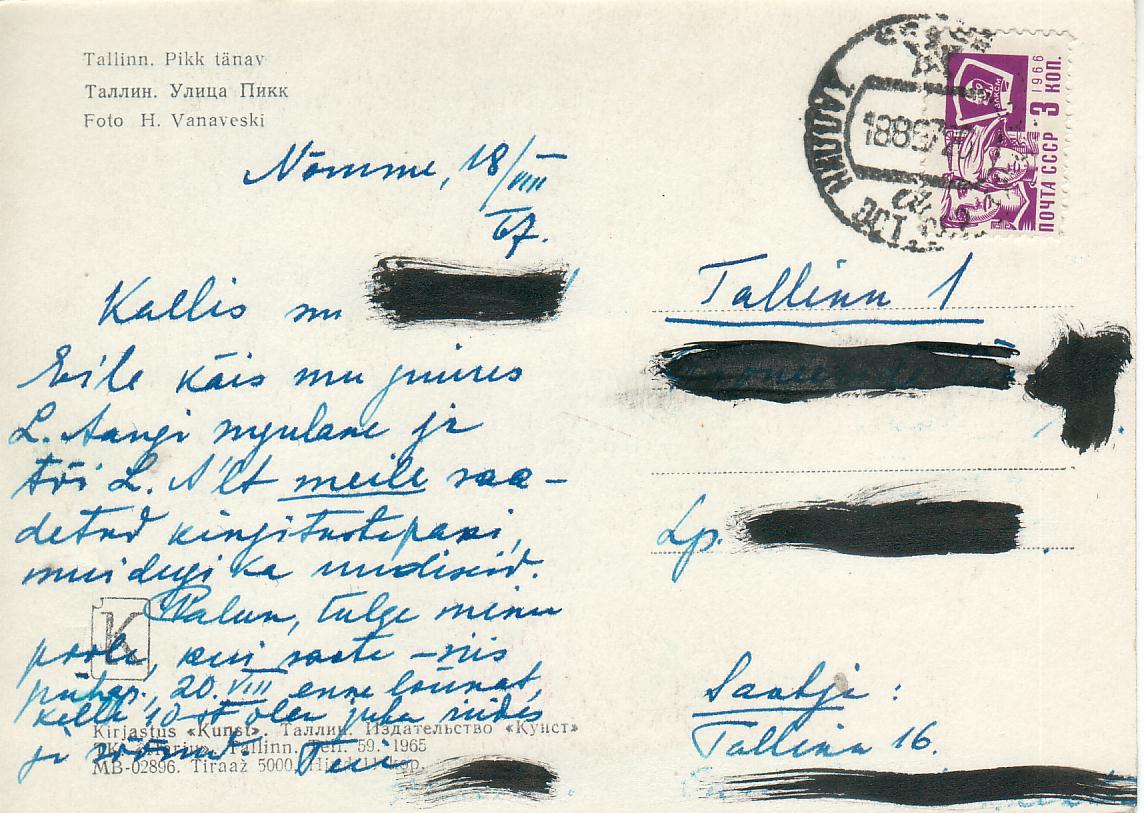 Tallinn. Pikk tänav
Таллин. Улица Пикк
Foto H. Vanaveski
Nõmme, 18/VIII
67.
Kallis mu
Eile käis mu juures
L. Aangi nyulane ja
tõi L. A'lt meile saa-
detud kingitustepaki,
muidugi ka uudiseid.
Palun, tulge minu
poole, kui saate – siis
pühap., 20. VIII enne lõunat,
kella 10-st olen juba riides
ja Teie
Kirjastus «Kunst». Таллин. Издательство «Кунст»
Tallinn. Tell. 59. 1965
MB-02896. Tiraaž 5000.
ТАЛЛИН
18867
ПОЧТА СССР 3 КОП.
1966
ВЛКСМ
Tallinn 1
Lp.
Saatja:
Tallinn 16.
K